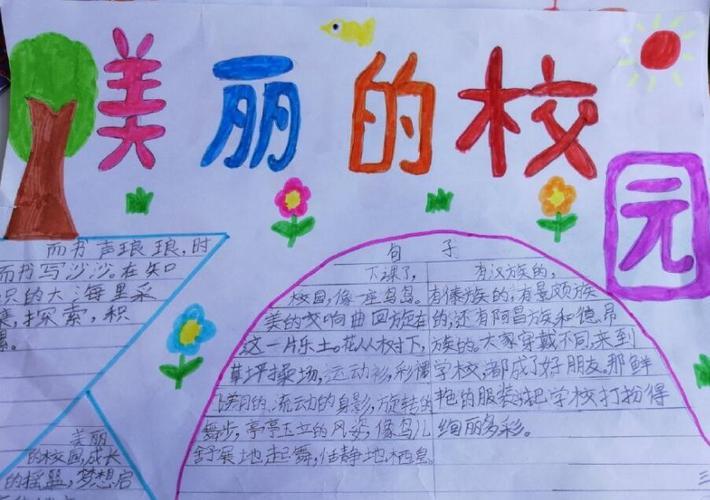 美丽的校园
而书声琅琅,时
而书写沙沙。在知
识的大海里采
探索,积
美丽
的校园,成长
的摇篮,梦想启
句子
下课了,
校园,像一座鸟岛。
美的交响曲回旋在
这一片乐土。花丛树下,
草坪操场,运动衫,彩裙
流动的身影,旋转的
舞步,亭亭玉立的风姿,像鸟儿
舒展地起舞,恬静地栖息。
有汉族的,
有傣族的,有景颇族
的,还有阿昌族和德昂
族的。大家穿戴不同,来到
学校,都成了好朋友。那鲜
艳的服装,把学校打扮得
绚丽多彩。
三